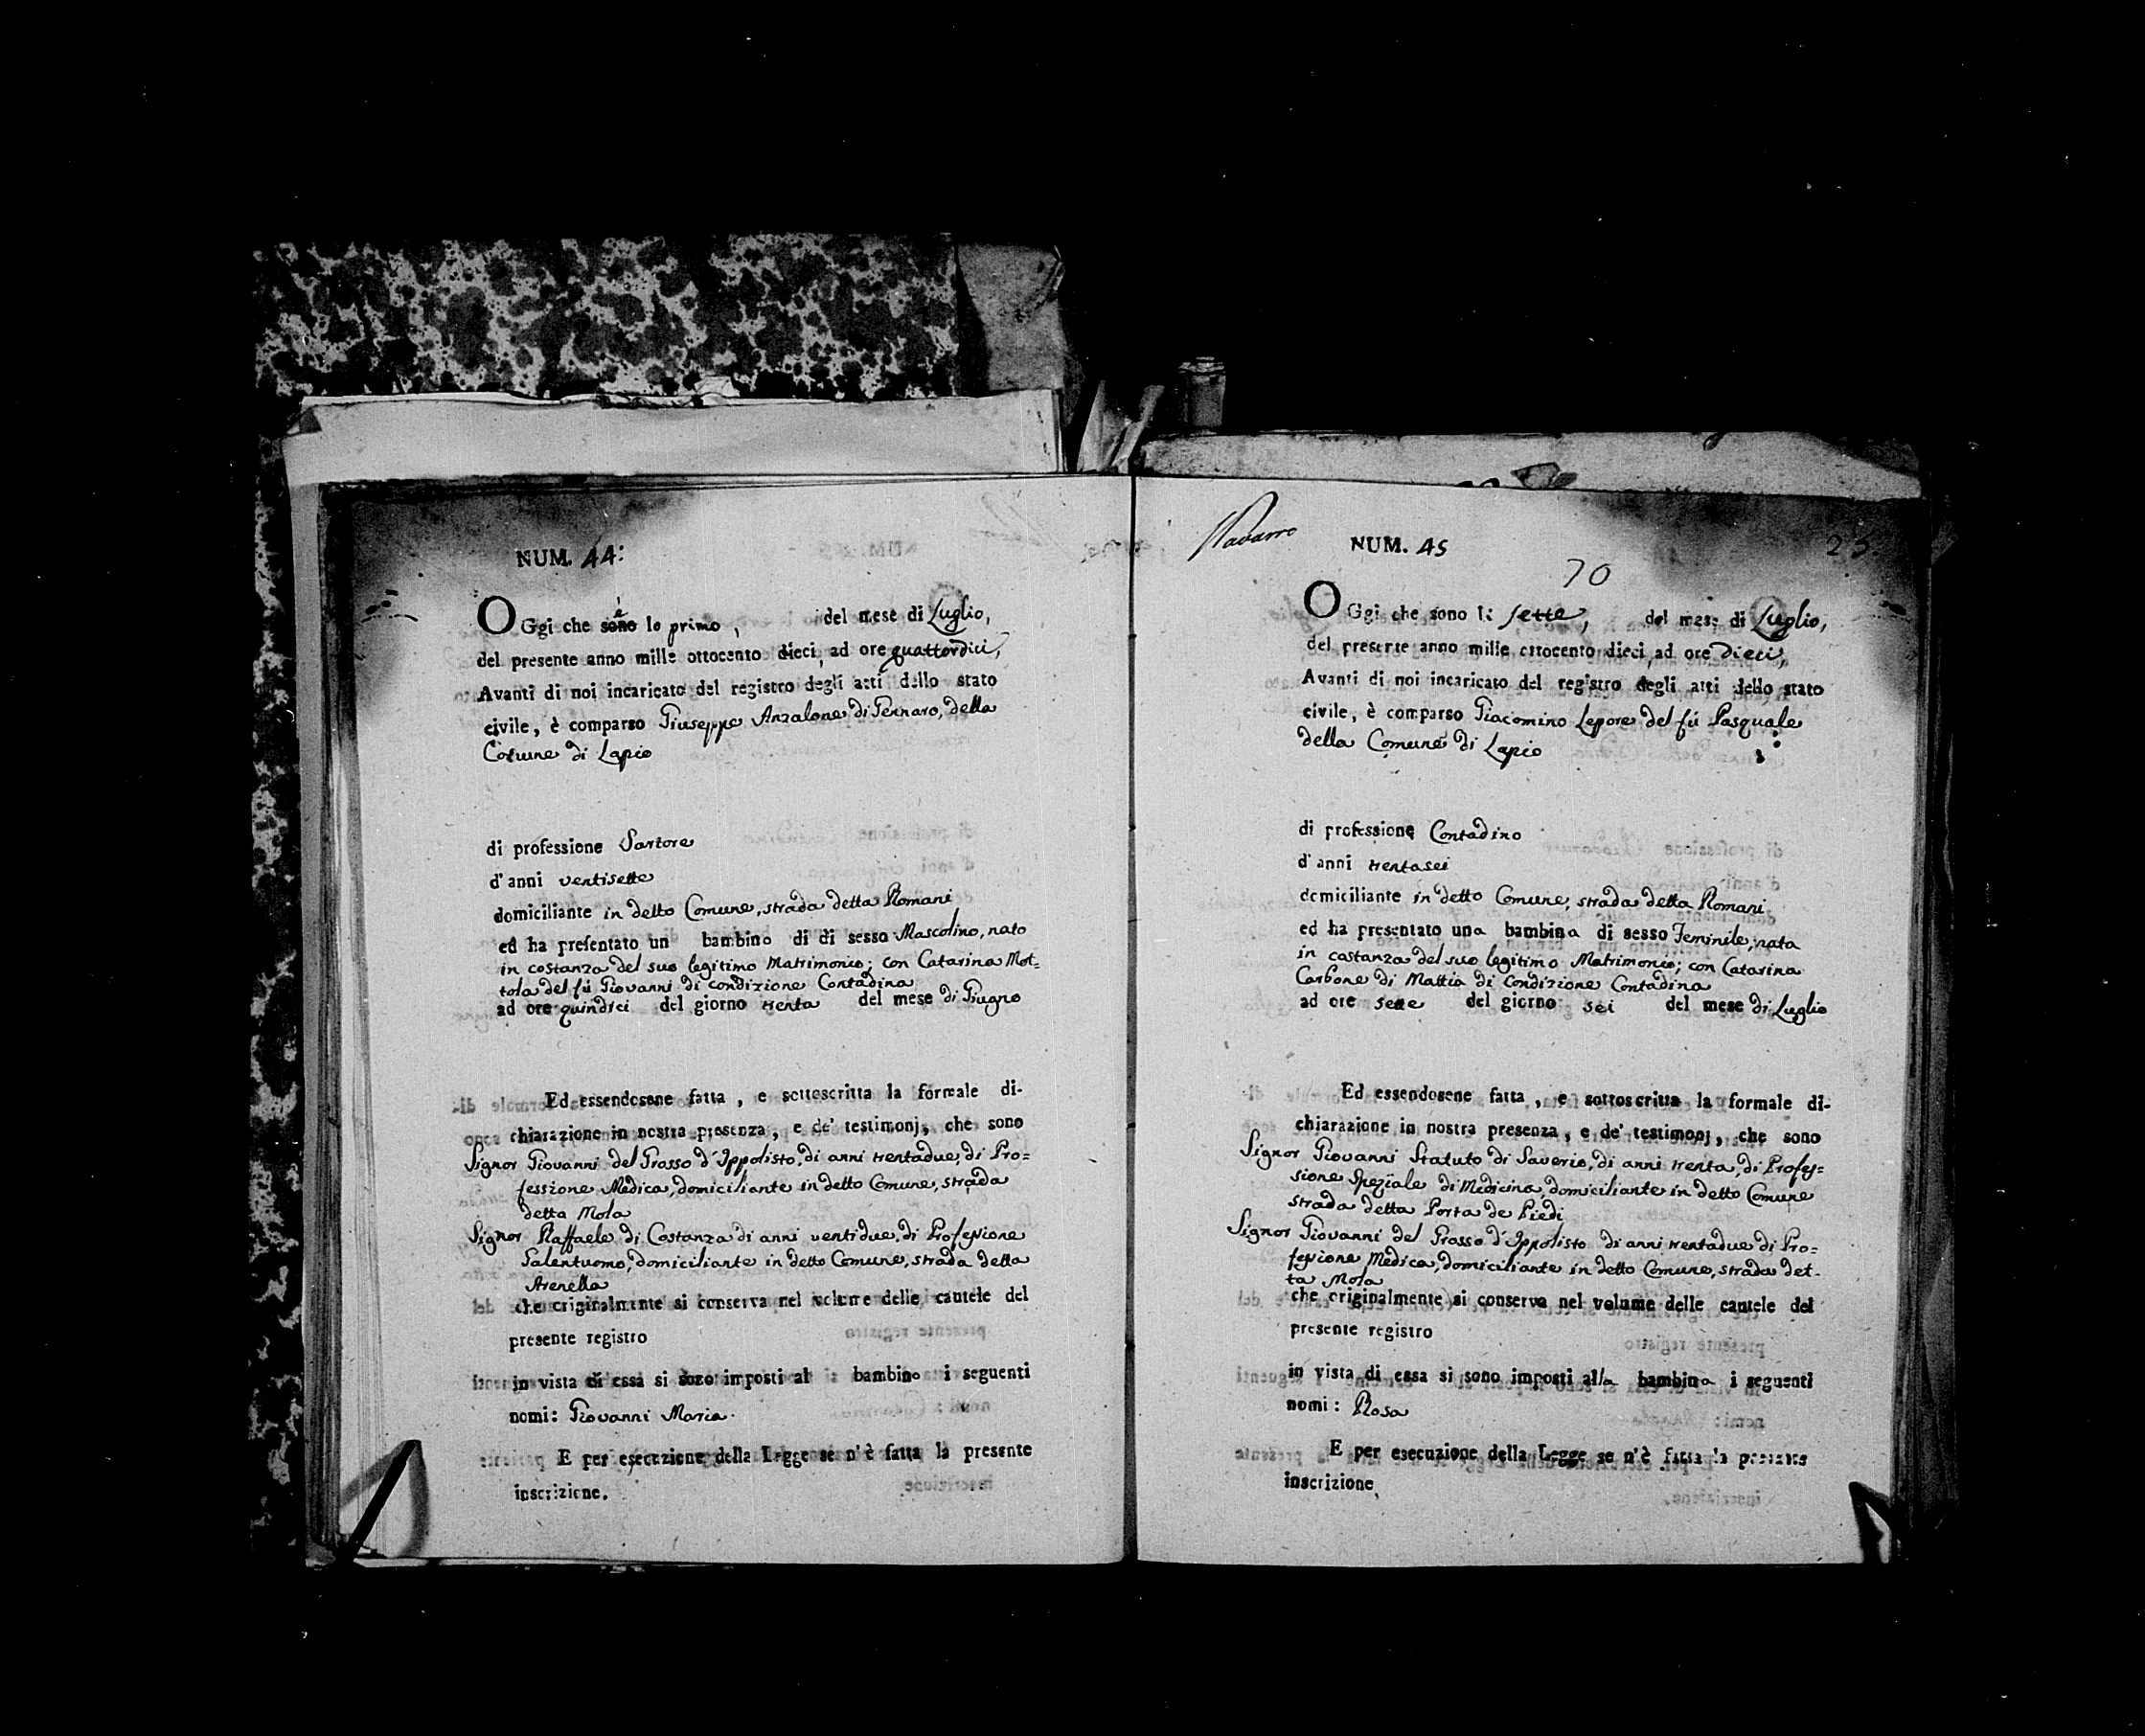 NUM. 44:
OGgi che sono è lo primo, del mese di Luglio,
del presente anno mille ottocento dieci, ad ore quattordici,
Avanti di noi incaricato del registro degli atti dello stato
civile, è comparso Giuseppe Anzalone di Gennaro, della
Comune di Lapio
di professione Sartore
d'anni ventisette
domiciliante in detto Comune, strada detta Romani
ed ha presentato un bambino di di sesso Mascolino, nato
in costanza del suo legitimo Matrimonio; con Catarina Mot=
tola del fù Giovanni di condizione Contadina
ad ore quindici del giorno trenta del mese di Giugno
Ed essendosene fatta, e sottoscritta la formale di-
chiarazione in nostra presenza, e de' testimonj, che sono
Signor Giovanni del Grosso d'Ippolisto, di anni trentadue, di Pro=
fessione Medica, domiciliante in detto Comune, strada
detta Mola
Signor Raffaele di Costanza di anni ventidue, di Professione
Galentuomo, domiciliante in detto Comune, strada detta
Arenella
che originalmente si conserva nel volume delle cautele del
presente registro
in vista di essa si sono imposti al bambino i seguenti
nomi: Giovanni Maria.
E per esecuzione della Legge se n'è fatta la presente
inscrizione.
Navarro
NUM. 45
23
70
OGgi che sono li sette, del mese di Luglio,
del presente anno mille ottocento dieci, ad ore dieci,
Avanti di noi incaricato del registro degli atti dello stato
civile, è comparso Giacomino Lepore del fù Pasquale
della Comune di Lapio
di professione Contadino
d'anni trentasei
domiciliante in detto Comune, strada detta Romani
ed ha presentato una bambina di sesso Feminile, nata
in costanza del suo legitimo Matrimonio; con Catarina
Carbone di Mattia di Condizione Contadina
ad ore sette del giorno sei del mese di Luglio
Ed essendosene fatta, e sottoscritta la formale di-
chiarazione in nostra presenza, e de' testimonj, che sono
Signor Giovanni Statuto di Saverio, di anni trenta, di Profes=
sione Speziale di Medicina, domiciliante in detto Comune
strada detta Porta de Piedi
Signor Giovanni del Grosso d'Ippolisto di anni trentadue di Pro=
fessione Medica, domiciliante in detto Comune, strada det-
ta Mola
che originalmente si conserva nel volume delle cautele del
presente registro
in vista di essa si sono imposti alla bambina i seguenti
nomi: Rosa
E per esecuzione della Legge se n'è fatta la presente
inscrizione